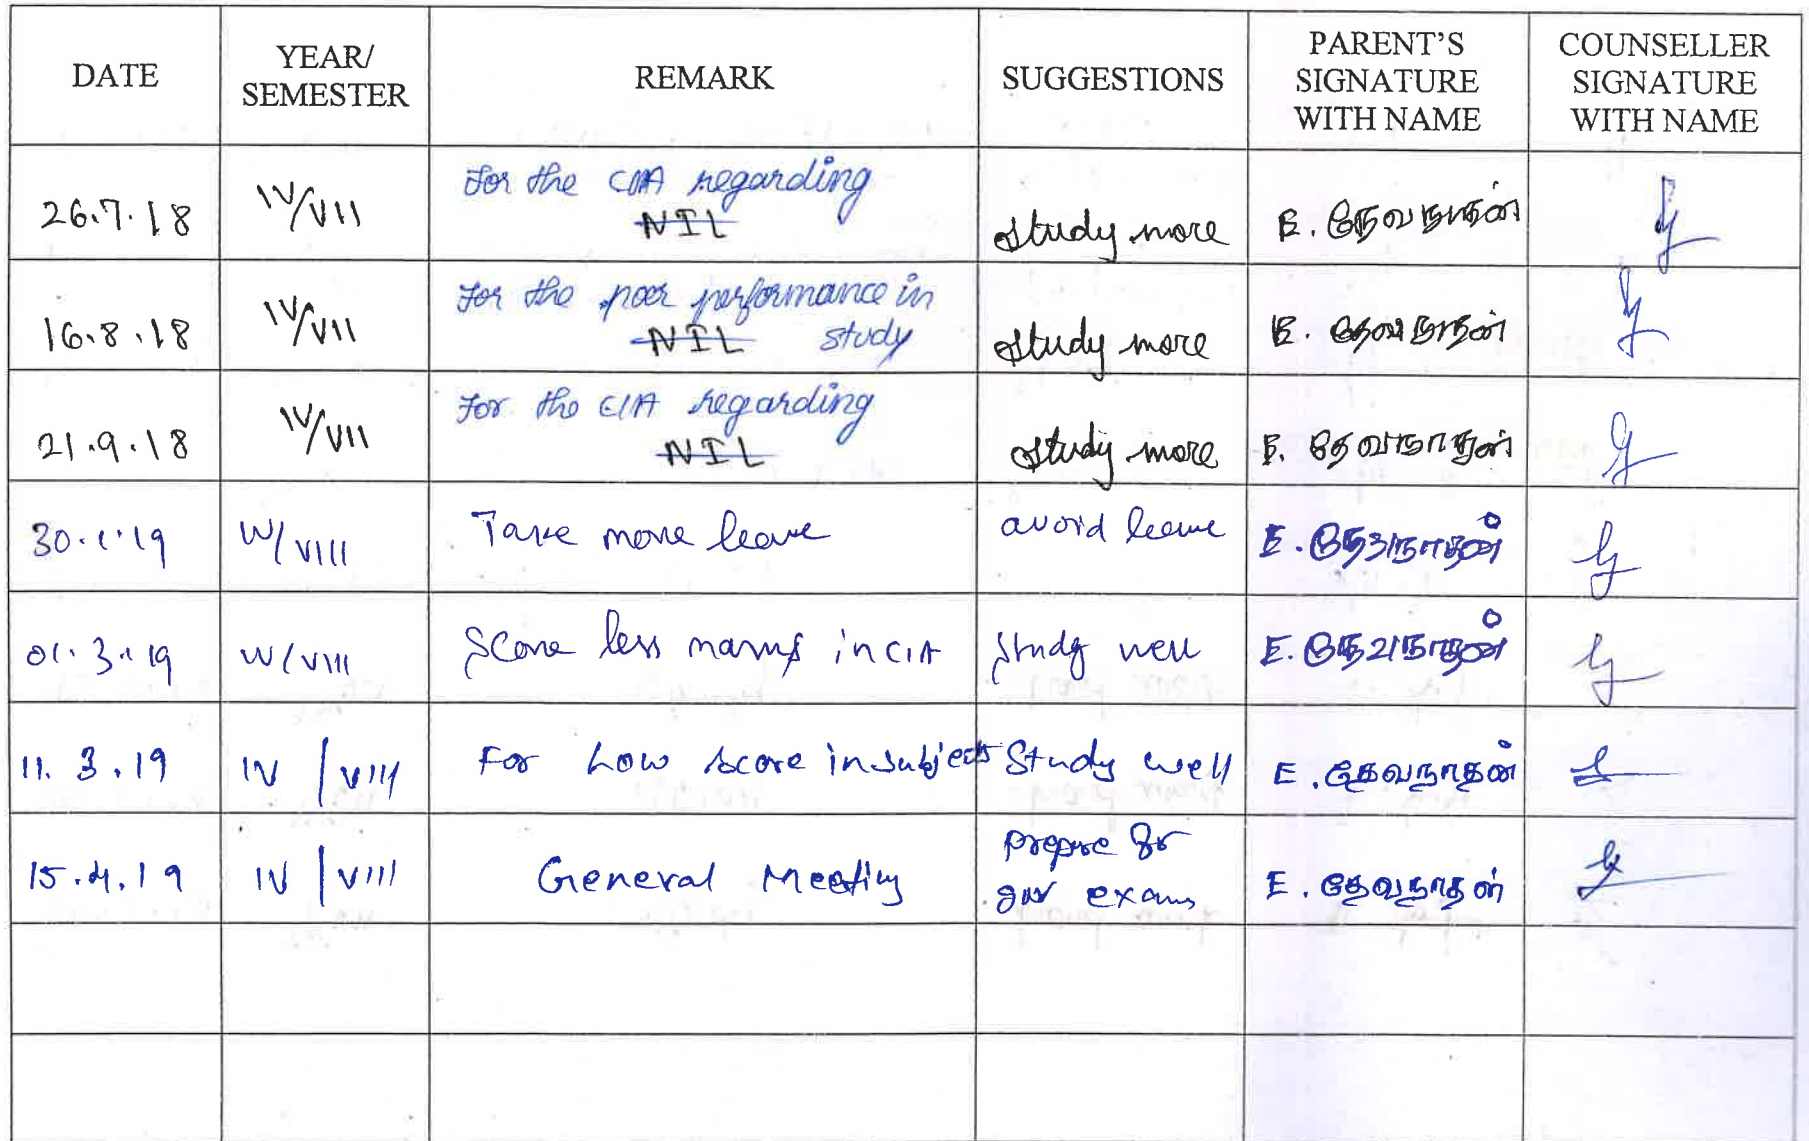 DATE
YEAR/
SEMESTER
REMARK
SUGGESTIONS
PARENT'S
SIGNATURE
WITH NAME
COUNSELLER
SIGNATURE
WITH NAME
26.7.18 IV/VII For the CIA regarding
NIL study more E. தேவநாதன்
16.8.18 IV/VII For the poor performance in
NIL study study more E. தேவநாதன்
21.9.18 IV/VII For the CIA regarding
NIL study more E. தேவநாதன்
30.1.19 IV/VIII Take more leave avoid leave E. தேவநாதன்
01.3.19 IV/VIII Score less marks in CIA Study well E. தேவநாதன்
11.3.19 IV/VIII For Low score in subjects Study well E. தேவநாதன்
15.4.19 IV/VIII General Meeting prepare for
exams E. தேவநாதன்